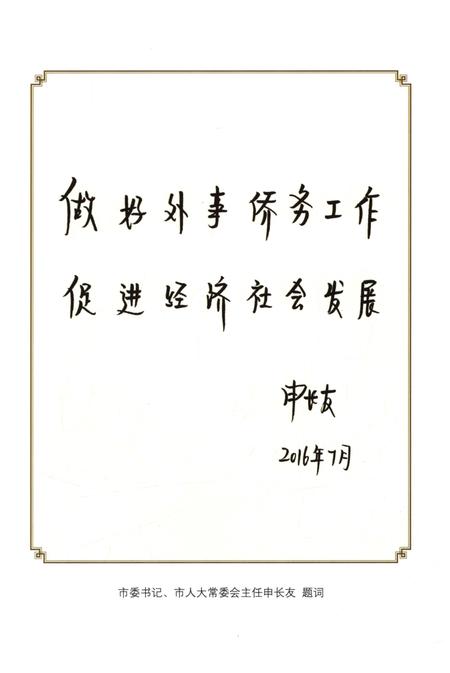 做好外事侨务工作
促进经济社会发展
申长友
2016年7月
市委书记、市人大常委会主任申长友 题词